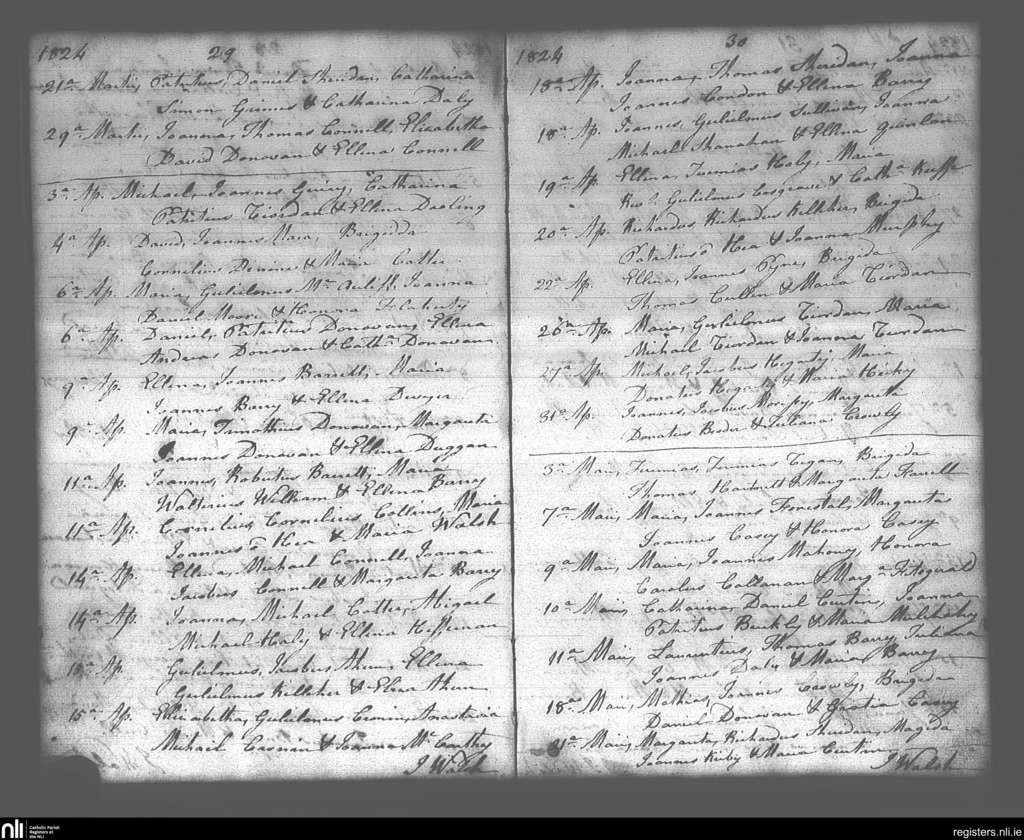 1824 29
21a Martii, Patritius, Daniel Sheridan, Catharina
Simon Grimes & Catharina Daly
29a Martii, Joanna, Thomas Connell, Elizabetha
David Donovan & Ellena Connell
3a Ap. Michael, Joannes Guiry, Catharina
Patritius Riordan & Ellena Dasling
4a Ap. David, Joannes Mara, Brigida
Cornelius Dinine & Maria Cotter
6a Ap. Maria, Gulielmus Mc Auliff, Joanna
Daniel Moore & Honora Flaherty
6a Ap. Daniel, Patritius Donovan, Ellena
Andreas Donovan & Cath. Donovan
9a Ap. Ellena, Joannes Barrett, Maria
Joannes Barry & Ellena Dwyer
9a Ap. Maria, Timotheus Donovan, Margarita
Joannes Donovan & Ellena Duggan
11a Ap. Joannes, Robertus Barrett, Maria
Walterus Welham & Ellena Barry
11a Ap. Cornelius, Cornelius Collins, Maria
Joannes ô Hea & Maria Walsh
14a Ap. Ellena, Michael Connell, Joanna
Jacobus Connell & Margarita Barry
14a Ap. Joanna, Michael Cotter, Abigael
Michael Haly & Ellena Heffernan
15a Ap. Gulielmus, Jacobus Ahern, Ellena
Gulielmus Kelleher & Ellena Ahern
15a Ap. Elizabetha, Gulielmus Cronin, Anastasia
Michael Casnan & Joanna Mc Carthy
J Walsh
1824 30
18a Ap. Joanna, Thomas Sheridan, Joanna
Joannes Condon & Ellena Barry
18a Ap. Joannes, Gulielmus Sullivan, Joanna
Michael Shanahan & Ellena Quinlan
19a Ap. Ellena, Jeremias Haly, Maria
Rev. Gulielmus Cosgrave & Cath. Keeffe
20a Ap. Richardus, Richardus Kelleher, Brigida
Patritius ô Hea & Joanna Murphy
22a Ap. Ellena, Joannes Pyne, Brigida
Thomas Cullin & Maria Riordan
26a Ap. Maria, Gulielmus Riordan, Maria
Michael Riordan & Joanna Riordan
27a Ap. Michael, Jacobus Hegarty, Maria
Donatus Hegarty & Maria Hicky
31a Ap. Joannes, Jacobus Morissy, Margarita
Donatus & Juliana Crowly
3a Maii, Jeremias, Jeremias Regan, Brigida
Thomas Hartnett & Margarita Farrell
7a Maii, Maria, Joannes Forestal, Margarita
Joannes Casey & Honora Casey
9a Maii, Maria, Joannes Mahony, Honora
Carolus Callanan & Marg.a Fitzgerald
10a Maii, Catharina, Daniel Curtin, Joanna
Patritius Buckly & Maria Mulchahy
11a Maii, Laurentius, Thomas Barry, Juliana
Joannes Daly & Maria Barry
18a Maii, Mathias, Joannes Crowly, Brigida
Daniel Donovan & Casey
21a Maii, Margarita, Richardus Sheridan, Brigida
Joannes Kirby & Maria Curtin
J Walsh
nli
Catholic Parish
Registers at
the NLI
registers.nli.ie